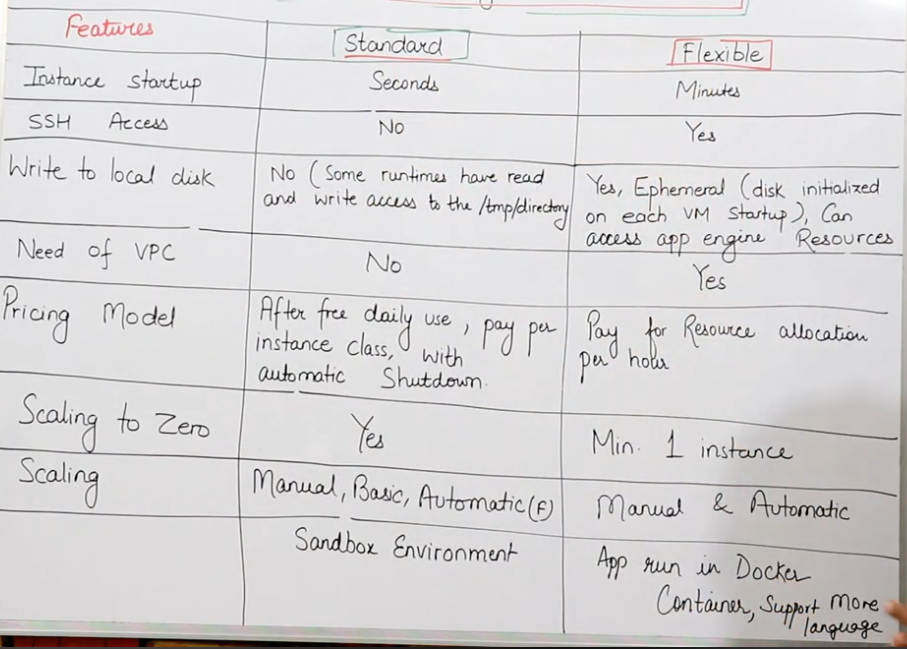 Features
Standard
Flexible
Instance startup
Seconds
Minutes
SSH Access
No
Yes
Write to local disk
No (Some runtimes have read
and write access to the /tmp/directory
Yes, Ephemeral (disk initialized
on each VM Startup), Can
access app engine Resources
Need of VPC
No
Yes
Pricing Model
After free daily use, pay per
instance class, with
automatic Shutdown.
Pay for Resource allocation
per hour
Scaling to Zero
Yes
Min. 1 instance
Scaling
Manual, Basic, Automatic(F)
Manual & Automatic
Sandbox Environment
App run in Docker
Container, Support More
language